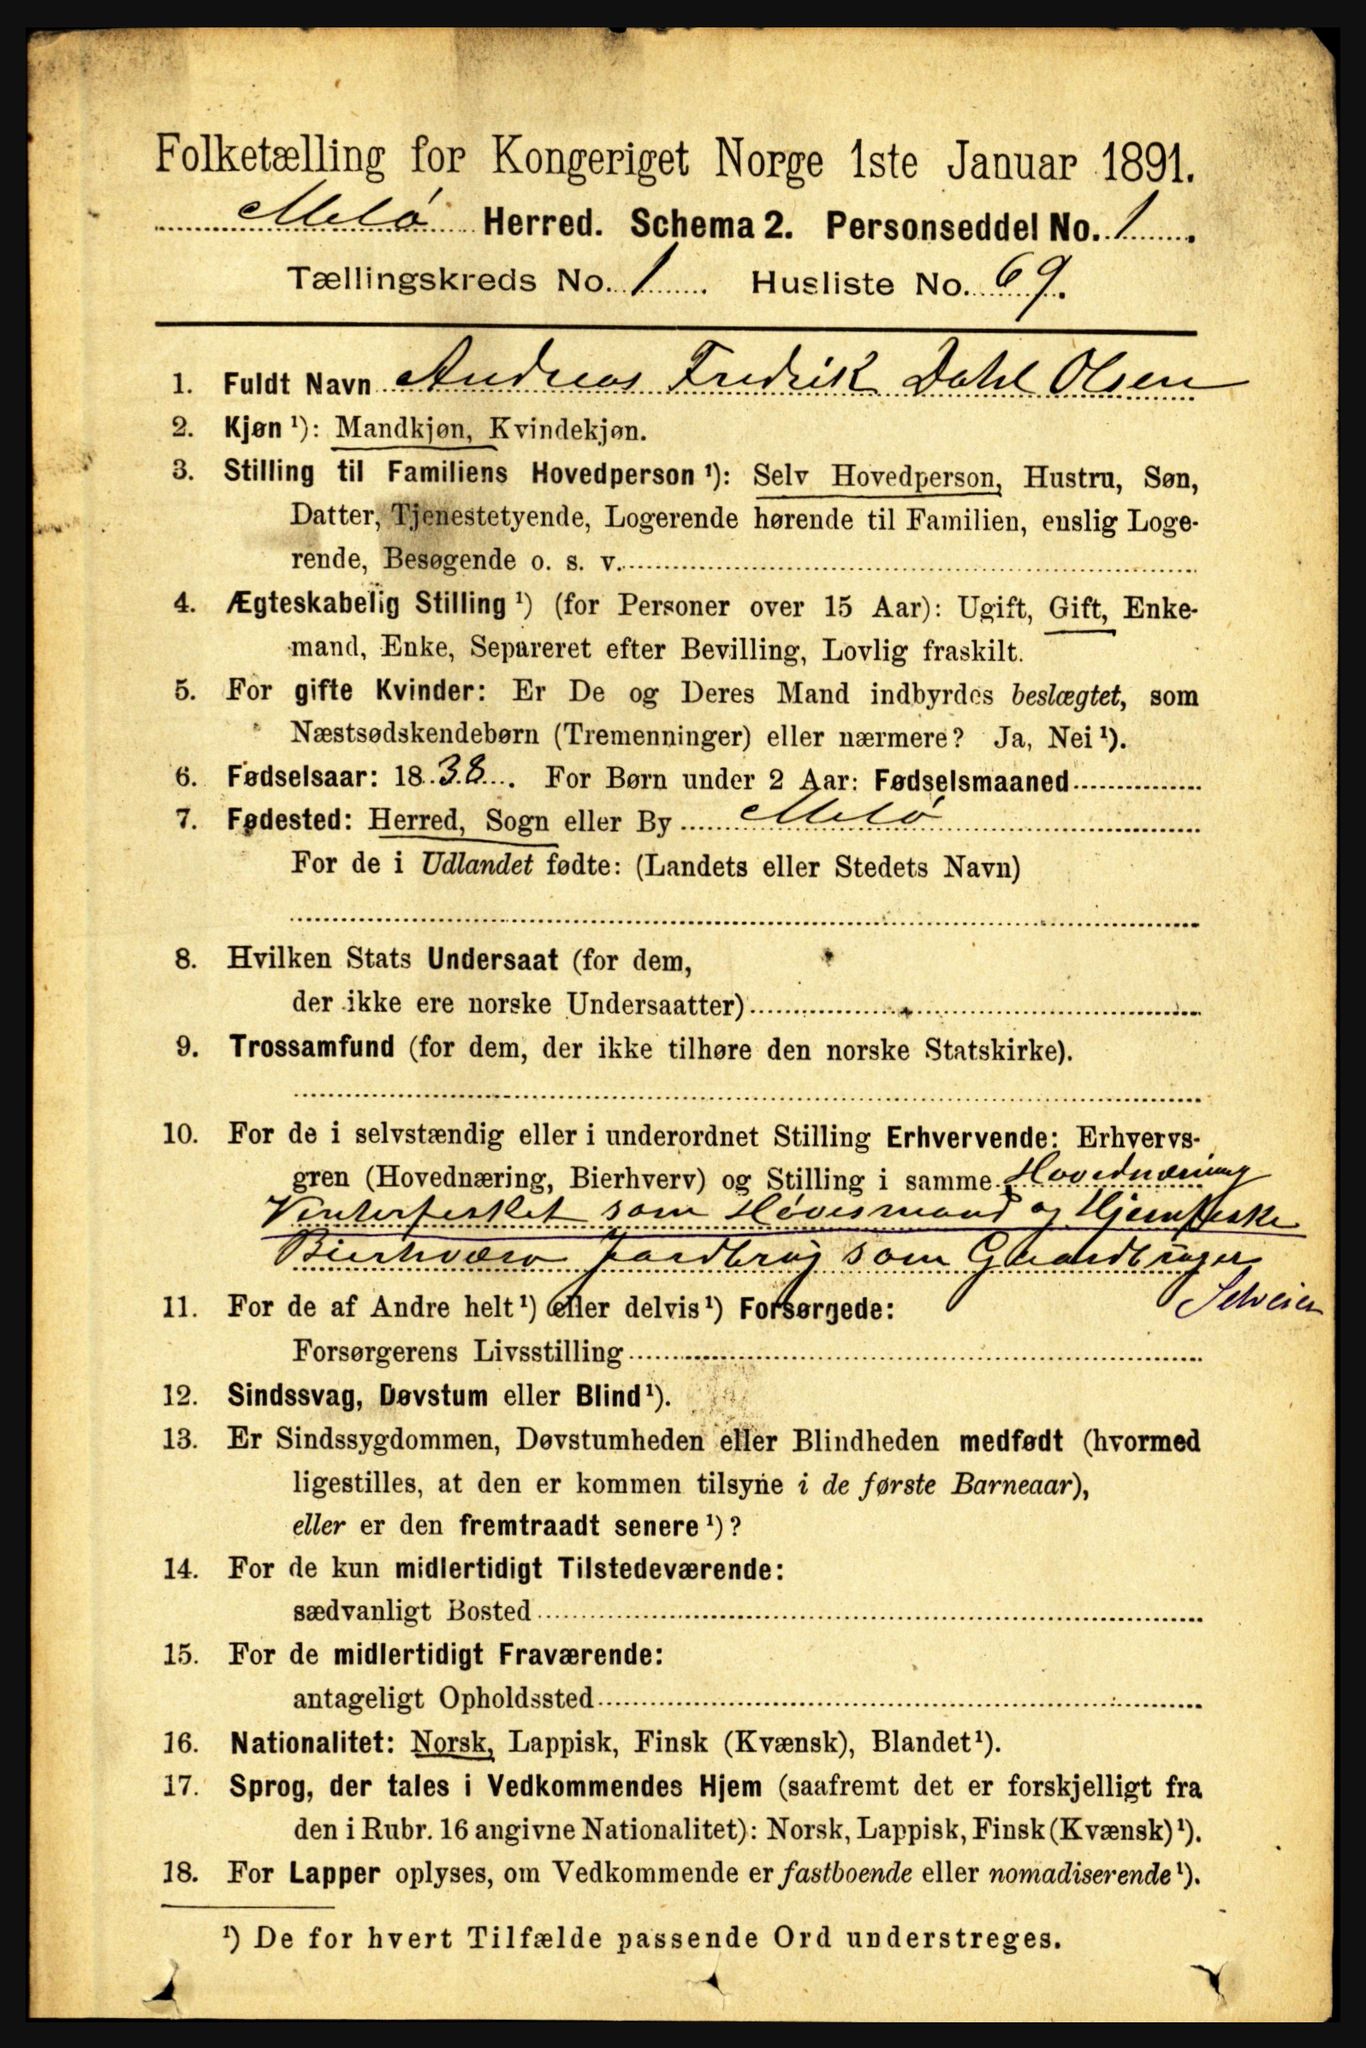 Folketælling for Kongeriget Norge 1ste Januar 1891.
Melø Herred. Schema 2. Personseddel No. 1.
Tællingskreds No. 1. Husliste No. 69.
1. Fuldt Navn Andreas Fredrik Dahl Olsen
2. Kjøn ¹): Mandkjøn, Kvindekjøn.
3. Stilling til Familiens Hovedperson ¹): Selv Hovedperson, Hustru, Søn,
Datter, Tjenestetyende, Logerende hørende til Familien, enslig Loge-
rende, Besøgende o. s. v.
4. Ægteskabelig Stilling ¹) (for Personer over 15 Aar): Ugift, Gift, Enke-
mand, Enke, Separeret efter Bevilling, Lovlig fraskilt.
5. For gifte Kvinder: Er De og Deres Mand indbyrdes beslægtet, som
Næstsødskendebørn (Tremenninger) eller nærmere? Ja, Nei ¹).
6. Fødselsaar: 1838. For Børn under 2 Aar: Fødselsmaaned
7. Fødested: Herred, Sogn eller By Melø
For de i Udlandet fødte: (Landets eller Stedets Navn)
8. Hvilken Stats Undersaat (for dem,
der ikke ere norske Undersaatter)
9. Trossamfund (for dem, der ikke tilhøre den norske Statskirke).
10. For de i selvstændig eller i underordnet Stilling Erhvervende: Erhvervs-
gren (Hovednæring, Bierhverv) og Stilling i samme Hovednæring
Vinterfisket som Høvesmand og Hjemfiske
Bierhværv Jordbrug som Gaardbruger
Selveier
11. For de af Andre helt ¹) eller delvis ¹) Forsørgede:
Forsørgerens Livsstilling
12. Sindssvag, Døvstum eller Blind ¹).
13. Er Sindssygdommen, Døvstumheden eller Blindheden medfødt (hvormed
ligestilles, at den er kommen tilsyne i de første Barneaar),
eller er den fremtraadt senere ¹)?
14. For de kun midlertidigt Tilstedeværende:
sædvanligt Bosted
15. For de midlertidigt Fraværende:
antageligt Opholdssted
16. Nationalitet: Norsk, Lappisk, Finsk (Kvænsk), Blandet ¹).
17. Sprog, der tales i Vedkommendes Hjem (saafremt det er forskjelligt fra
den i Rubr. 16 angivne Nationalitet): Norsk, Lappisk, Finsk (Kvænsk) ¹).
18. For Lapper oplyses, om Vedkommende er fastboende eller nomadiserende ¹).
¹) De for hvert Tilfælde passende Ord understreges.